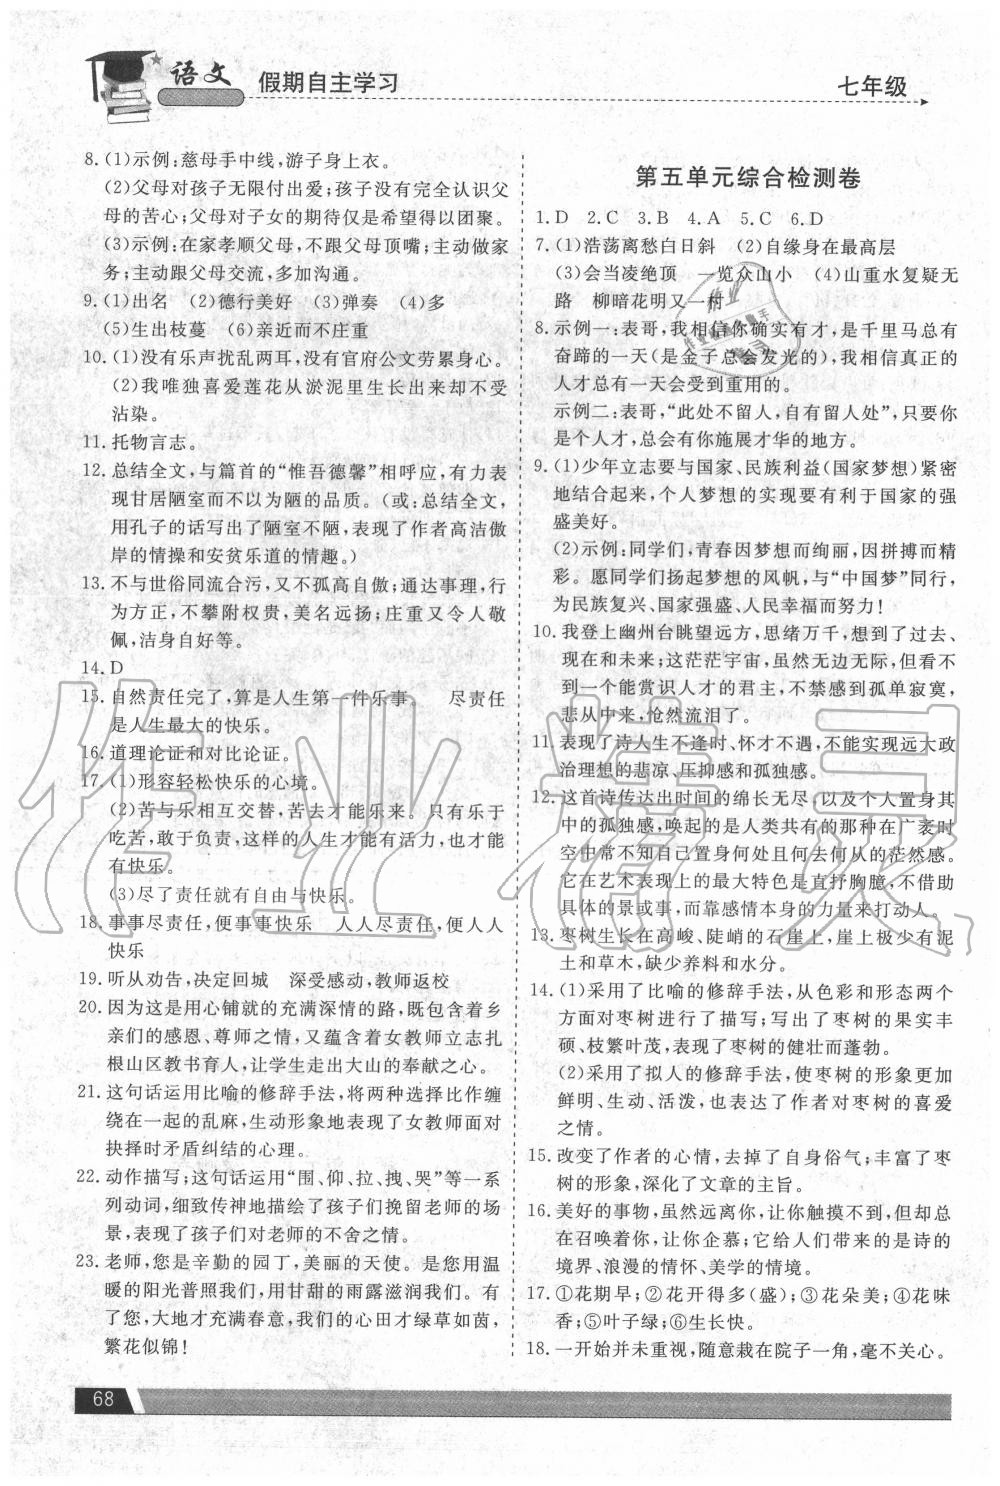 语文 假期自主学习
七年级
8. (1)示例:慈母手中线,游子身上衣。
(2)父母对孩子无限付出爱;孩子没有完全认识父
母的苦心;父母对子女的期待仅是希望得以团聚。
(3)示例:在家孝顺父母,不跟父母顶嘴;主动做家
务;主动跟父母交流,多加沟通。
9. (1)出名 (2)德行美好 (3)弹奏 (4)多
(5)生出枝蔓 (6)亲近而不庄重
10. (1)没有乐声扰乱两耳,没有官府公文劳累身心。
(2)我唯独喜爱莲花从淤泥里生长出来却不受
沾染。
11. 托物言志。
12. 总结全文,与篇首的“惟吾德馨”相呼应,有力表
现甘居陋室而以为陋的品质。(或:总结全文,
用孔子的话写出了陋室不陋,表现了作者高洁傲
岸的情操和安贫乐道的情趣。)
13. 不与世俗同流合污,又不孤高自傲;通达事理,行
为方正,不攀附权贵,美名远扬;庄重又令人敬
佩,洁身自好等。
14. D
15. 自然责任完了,算是人生第一件乐事。 尽责任
是人生最大的快乐。
16. 道理论证和对比论证。
17. (1)形容轻松快乐的心境。
(2)苦与乐相互交替,苦去才能乐来。只有乐于
吃苦,敢于负责,这样的人生才能有活力,也才能
有快乐。
(3)尽了责任就有自由与快乐。
18. 事事尽责任,便事事快乐 人人尽责任,便人人
快乐
19. 听从劝告,决定回城 深受感动,教师返校
20. 因为这是用心铺就的充满深情的路,既包含着乡
亲们的感恩、尊师之情,又蕴含着女教师立志扎
根山区教书育人,让学生走出大山的奉献之心。
21. 这句话运用比喻的修辞手法,将两种选择比作缠
绕在一起的乱麻,生动形象地表现了女教师面对
抉择时矛盾纠结的心理。
22. 动作描写;这句话运用“围、仰、拉、拽、哭”等一系
列动词,细致传神地描绘了孩子们挽留老师的场
景,表现了孩子们对老师的不舍之情。
23. 老师,您是辛勤的园丁,美丽的天使。是您用温
暖的阳光普照我们,用甘甜的雨露滋润我们。有
了您,大地才充满春意,我们的心田才绿草如茵,
繁花似锦!
第五单元综合检测卷
1. D 2. C 3. B 4. A 5. C 6. D
7. (1)浩荡离愁白日斜 (2)自缘身在最高层
(3)会当凌绝顶 一览众山小 (4)山重水复疑无
路 柳暗花明又一村
8. 示例一:表哥,我相信你确实有才,是千里马总有
奋蹄的一天(是金子总会发光的),相信真正的
人才总有一天会受到重用的。
示例二:表哥,“此处不留人,自有留人处”,只要你
是个人才,总会有你施展才华的地方。
9. (1)少年立志要与国家、民族利益(国家梦想)紧密
地结合起来,个人梦想的实现要有利于国家的强
盛美好。
(2)示例:同学们,青春因梦想而绚丽,因拼搏而精
彩。愿同学们扬起梦想的风帆,与“中国梦”同行,
为民族复兴、国家强盛、人民幸福而努力!
10. 我登上幽州台眺望远方,思绪万千,想到了过去、
现在和未来;这茫茫宇宙,虽然无边无际,但看不
到一个能赏识人才的君主,不禁感到孤单寂寞,
悲从中来,怆然流泪了。
11. 表现了诗人生不逢时、怀才不遇,不能实现远大政
治理想的悲凉、压抑感和孤独感。
12. 这首诗传达出时间的绵长无尽,以及个人置身其
中的孤独感,唤起的是人类共有的那种在广袤时
空中常不知自己置身何处且何去何从的茫然感。
它在艺术表现上的最大特色是直抒胸臆,不借助
具体的景或事,而靠感情本身的力量来打动人。
13. 枣树生长在高峻、陡峭的石崖上,崖上极少有泥
土和草木,缺少养料和水分。
14. (1)采用了比喻的修辞手法,从色彩和形态两个
方面对枣树进行了描写;写出了枣树的果实丰
硕、枝繁叶茂,表现了枣树的健壮而蓬勃。
(2)采用了拟人的修辞手法,使枣树的形象更加
鲜明、生动、活泼,也表达了作者对枣树的喜爱
之情。
15. 改变了作者的心情,去掉了自身俗气;丰富了枣
树的形象,深化了文章的主旨。
16. 美好的事物,虽然远离你,让你触摸不到,但却总
在召唤着你,让你去亲近;它给人们带来的诗的
境界、浪漫的情怀、美学的情境。
17. ①花期早;②花开得多(盛);③花朵美;④花味
香;⑤叶子绿;⑥生长快。
18. 一开始并未重视,随意栽在院子一角,毫不关心。
68
作业精灵